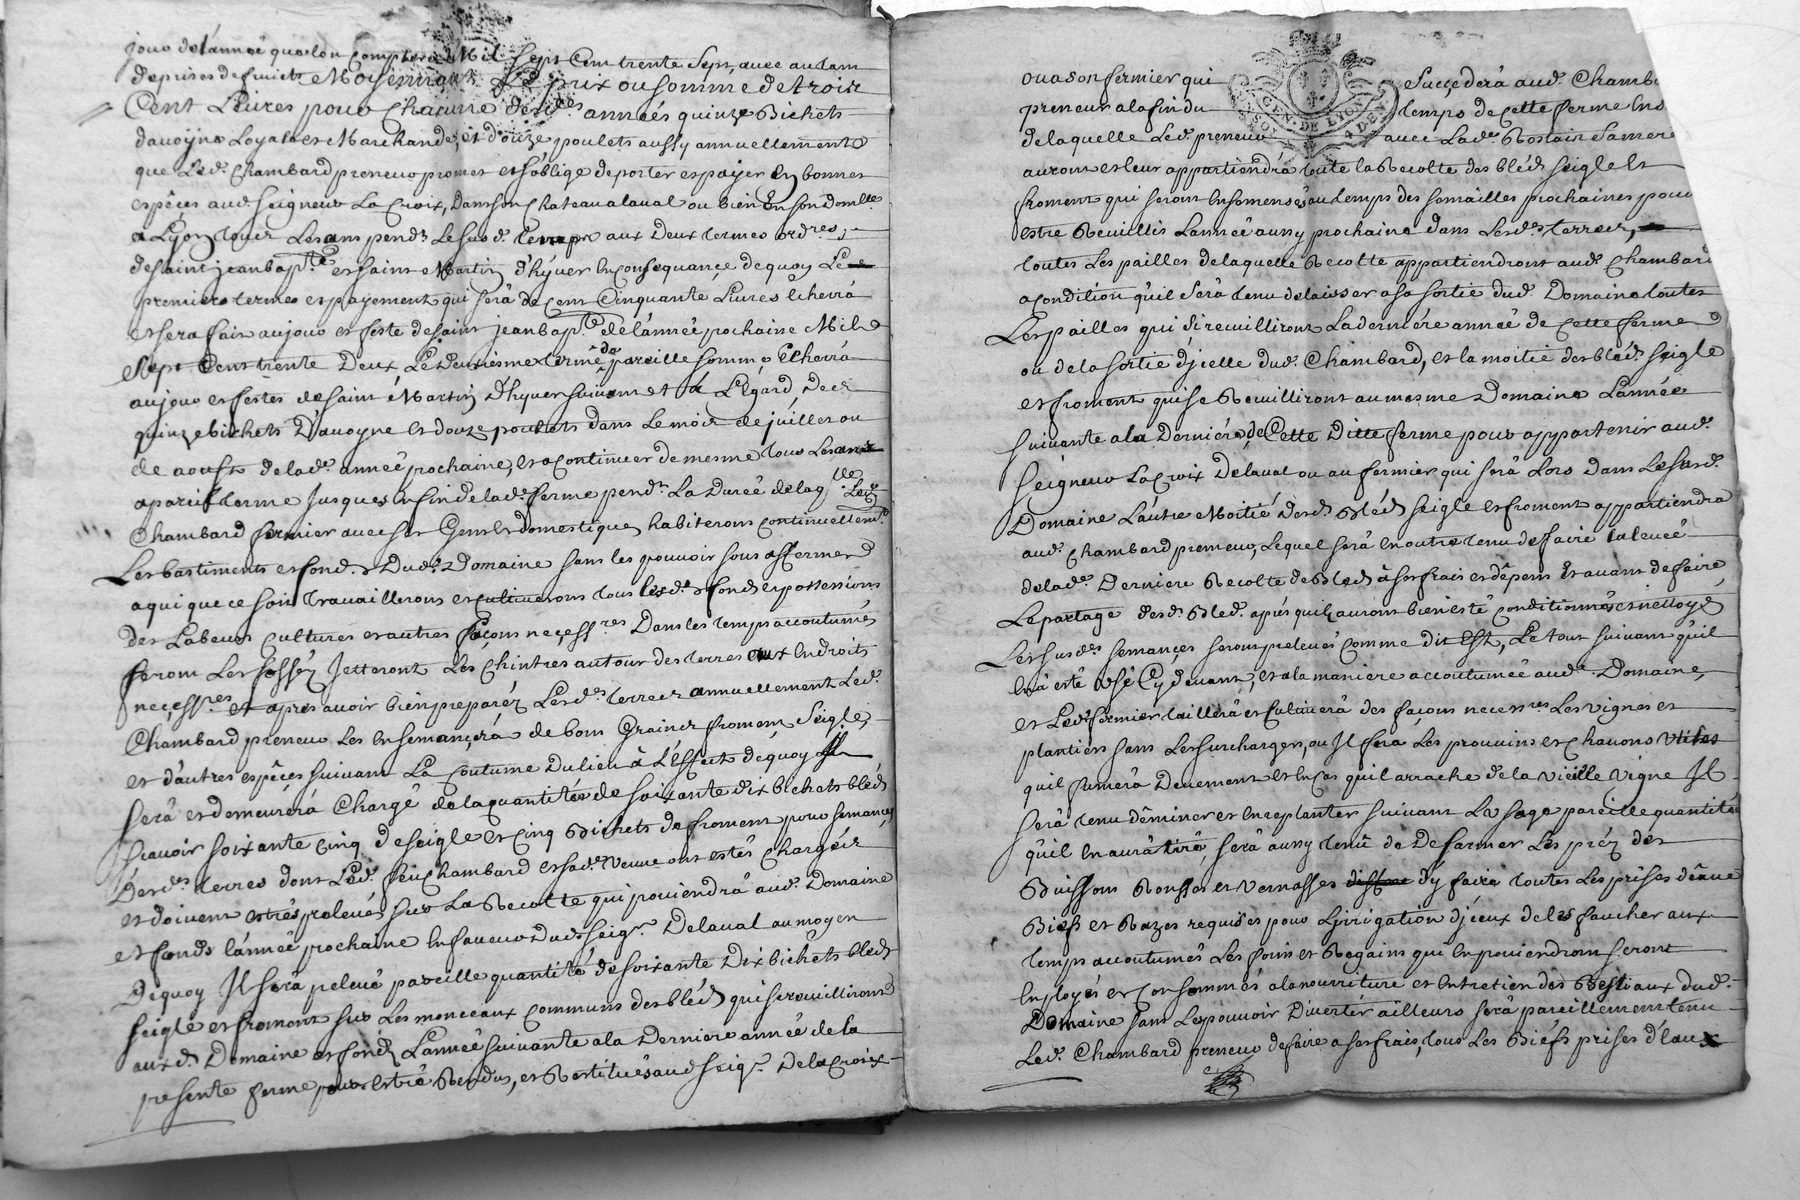 jour de l'année que l'on comptera Mil Sept Cent trente Sept, avec autant
de prises de fruicts Moyennant Le prix ou somme de trois
Cent Livres pour Chacune desd.es années quinze Bichets
d'avoyne Loyalle et Marchande, et douze poulets aussy annuellement
que Led. Chambard preneur promet et s'oblige de porter et payer En bonnes
espèces aud. seigneur La Croix, Dans son Chateau a laval ou bien En son domlle
a Lÿon tous Les ans pendt Le susd. temps aux Deux termes ordres,
de saint jean bapte et saint Martin d'hÿver En consequance de quoy Le
premier terme et payement qui serà de Cent Cinquante Livres Echerrà
et sera fait au jour et feste de saint jean bapte de l'année prochaine Mil
Sept Cent trente Deux, Le Deuxième terme de pareille somme Echerrà
au jour et festes de saint Martin D'hyver suivant et à L'Egard des
quinze bichets D'avoyne et douze poulets dans Le mois de juillet ou
de aoust de lad. année prochaine, et a Continuer de mesme tous Les ans
a pareil terme Jusques En fin de lad. ferme pendt La Durée de laqlle Led.
Chambard fermier avec ses Gens et domestiques habiterons continuellemt
Les bastiments et fonds Dud. Domaine sans les pouvoir sous affermer
a qui que ce soit travaillerons et cultiverons tous lesd. fonds et possessions
des Labeurs Cultures et autres façons necessres Dans les temps accoutumés
feront Les fossés Jetteront Les Chintres autour des terres aux Endroits
necessres et apres avoir bien preparéz Lesd. terres annuellement Led.
Chambard preneur Les Ensemançerà de bons Grains froment Seigle
et d'autres espèces suivant La Coutume Du lieu à L'Effect de quoy Il
Serà et demeurerà Chargé de la quantité de soixante dix bichets bléds
sçavoir soixante Cinq de seigle et Cinq Bichets de froment pour semances
Desd.es terres dont Led. feu Chambard et sad. veuve ont estés Chargés
et doivent estres prelevés sur La Recolte qui proviendrà aud. Domaine
et fonds l'année prochaine En faveur Dud. Seigr. Delaval au moyen
De quoy Il serà prelevé pareille quantité de soixante Dix bichets bleds
seigle et froment sur Les monceaux communs des bléds qui se recuilliront
auxd. Domaine et fonds L'année suivante a la Derniere année de la
presente ferme pour Estre Rendus, et Restitués aud. Seigr. De la Croix
ou a son fermier qui Succederà aud. Chambard
preneur a la fin du temps de Cette ferme
de laquelle Led. preneur avec Lad. Rostain Sa mere
auront et leur appartiendrà toute la Recolte des bléds seigle et
froment qui seront Ensemensés au temps des semailles prochaines pour
estre Recuillis L'année auny prochaine dans Lesd.es terres,
toutes Les pailles de laquelle Recolte appartiendront aud. Chambard
a condition qu'il Serà tenu de laisser a sa sortie dud. Domaine toutes
Les pailles qui si recuilliront La derniére année de Cette ferme
ou de la sortie d'jcelle dud. Chambard, et la moitié des bléds seigle
et froment qui se Recuilliront au mesme Domaine L'année
suivante a la Derniére de Cette Ditte ferme pour appartenir aud.
Seigneur La Croix Delaval ou au fermier qui serà Lors dans Le susd.
Domaine L'autre Moitié Desd. Bléds seigle et froment appartiendra
aud. Chambard preneur, Lequel serà En outre tenu de faire La levée
de lad. Derniere Recolte de Bled à ses frais et dépens Et avant de faire
Le partage desd. Bled. aprés qu'ils auront bien esté Conditionnés et nettoyés
Les susd.es semançes seront prelevées Comme dit Est, Le tout suivant qu'il
En a esté usé Cy devant, et a la maniere accoutumée aud. Domaine,
et Led. fermier taillerà et Cultiverà des façons necessres Les vignes et
plantiers sans Les surcharger, ou Il fera Les prouvins et Chavons utiles
quil fumerà Deuement et En Cas quil arrache de la vieille vigne Il
serà tenu déminer et En replanter suivant L'usage pareille quantité
qu'il En aurà tiré, serà aussy tenu de Defarmer Les préz des
Buissons Ronsses et Vernasses d'y faire toutes Les prises d'eaue
Biefs et Razes requises pour L'irrigation d'jceux de les faucher aux
temps accoutumés Les foins et Regains qui En proviendrons seront
Employés et Consommés a la nourriture et Entretien des Bestiaux dud.
Domaine sans Les pouvoir Divertir ailleurs serà pareillement tenu
Led. Chambard preneur de faire a ses frais, tous Les Biéfs prises d'Eaux
GEN. DE LYON